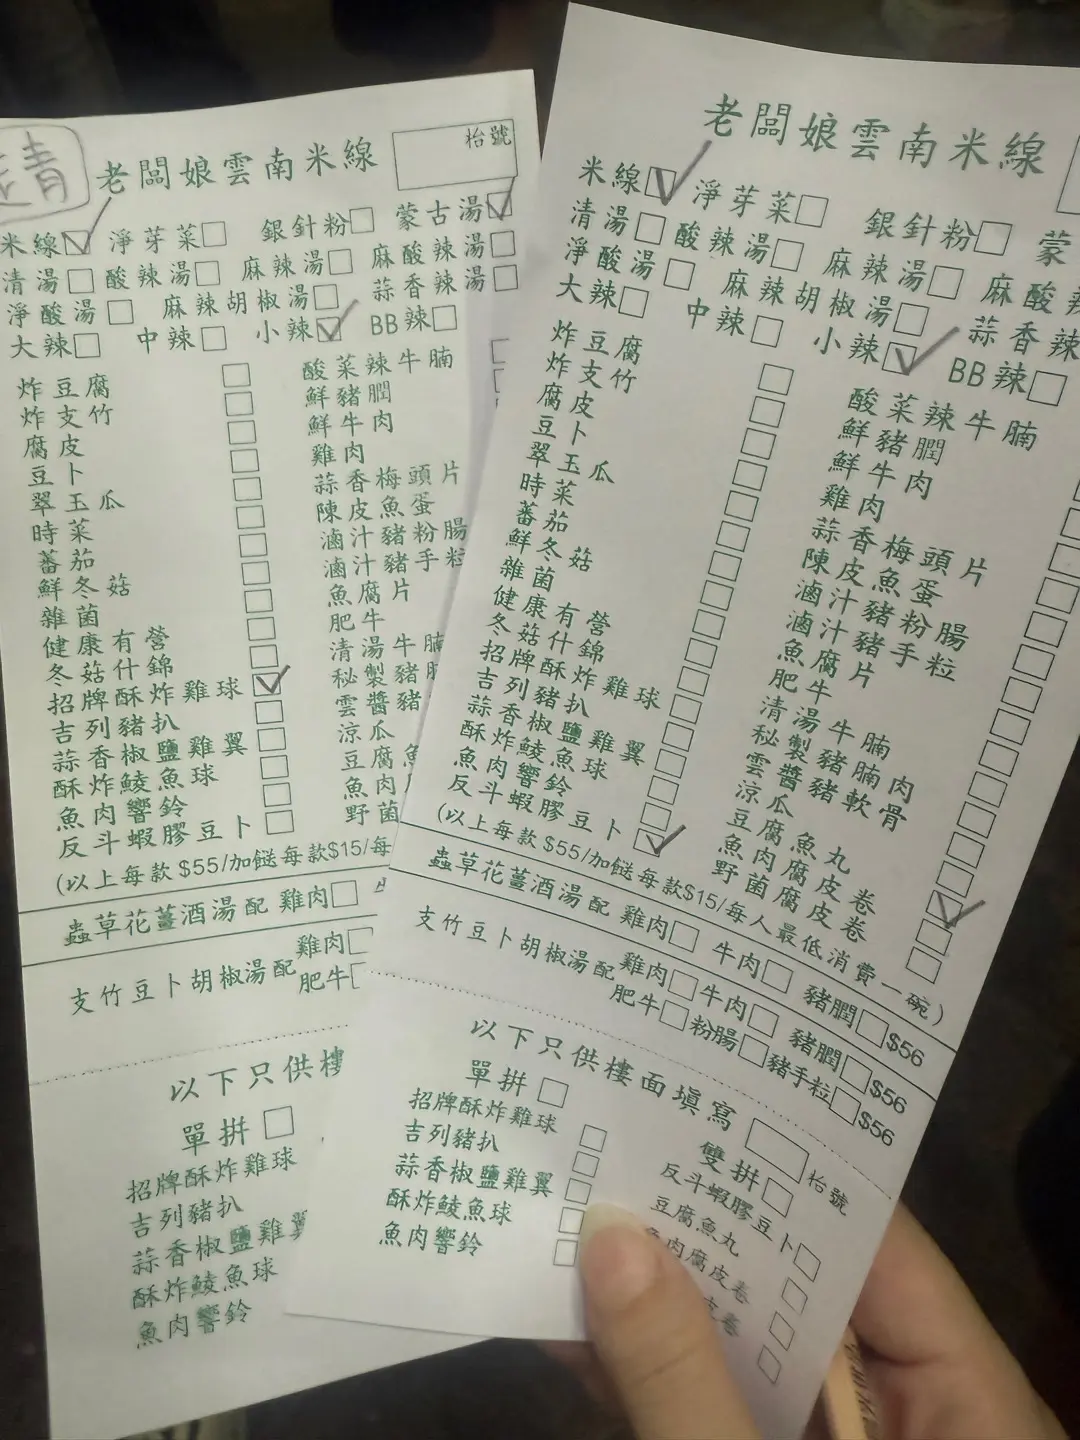 走青
老闆娘雲南米線
枱號
米線 淨芽菜 銀針粉 蒙古湯
清湯 酸辣湯 麻辣湯 麻酸辣湯
淨酸湯 麻辣胡椒湯 蒜香辣湯
大辣 中辣 小辣 BB辣
炸豆腐 酸菜辣牛腩
炸支竹 鮮豬膶
腐皮 鮮牛肉
豆卜 雞肉
翠玉瓜 蒜香梅頭片
時菜 陳皮魚蛋
蕃茄 滷汁豬粉腸
鮮冬菇 滷汁豬手粒
雜菌 魚腐片
健康有營 肥牛
冬菇什錦 清湯牛腩
招牌酥炸雞球 秘製豬
吉列豬扒 雲醬豬
蒜香椒鹽雞翼 涼瓜
酥炸鯪魚球 豆腐魚
魚肉響鈴 魚肉
反斗蝦膠豆卜 野菌
(以上每款$55/加餸每款$15/每
蟲草花薑酒湯配 雞肉
支竹豆卜胡椒湯配 雞肉
肥牛
以下只供樓
單拼
招牌酥炸雞球
吉列豬扒
蒜香椒鹽雞翼
酥炸鯪魚球
魚肉響鈴
老闆娘雲南米線
米線 淨芽菜 銀針粉 蒙
清湯 酸辣湯 麻辣湯 麻酸辣
淨酸湯 麻辣胡椒湯 蒜香辣
大辣 中辣 小辣 BB辣
炸豆腐 酸菜辣牛腩
炸支竹 鮮豬膶
腐皮 鮮牛肉
豆卜 雞肉
翠玉瓜 蒜香梅頭片
時菜 陳皮魚蛋
蕃茄 滷汁豬粉腸
鮮冬菇 滷汁豬手粒
雜菌 魚腐片
健康有營 肥牛
冬菇什錦 清湯牛腩
招牌酥炸雞球 秘製豬腩肉
吉列豬扒 雲醬豬軟骨
蒜香椒鹽雞翼 涼瓜
酥炸鯪魚球 豆腐魚丸
魚肉響鈴 魚肉腐皮卷
反斗蝦膠豆卜 野菌腐皮卷
(以上每款$55/加餸每款$15/每人最低消費一碗)
蟲草花薑酒湯配 雞肉 牛肉 豬膶 $56
支竹豆卜胡椒湯配 雞肉 牛肉 豬膶 $56
肥牛 粉腸 豬手粒 $56
以下只供樓面填寫 枱號
單拼 雙拼
招牌酥炸雞球 反斗蝦膠豆卜
吉列豬扒 豆腐魚丸
蒜香椒鹽雞翼 魚肉腐皮卷
酥炸鯪魚球 皮卷
魚肉響鈴